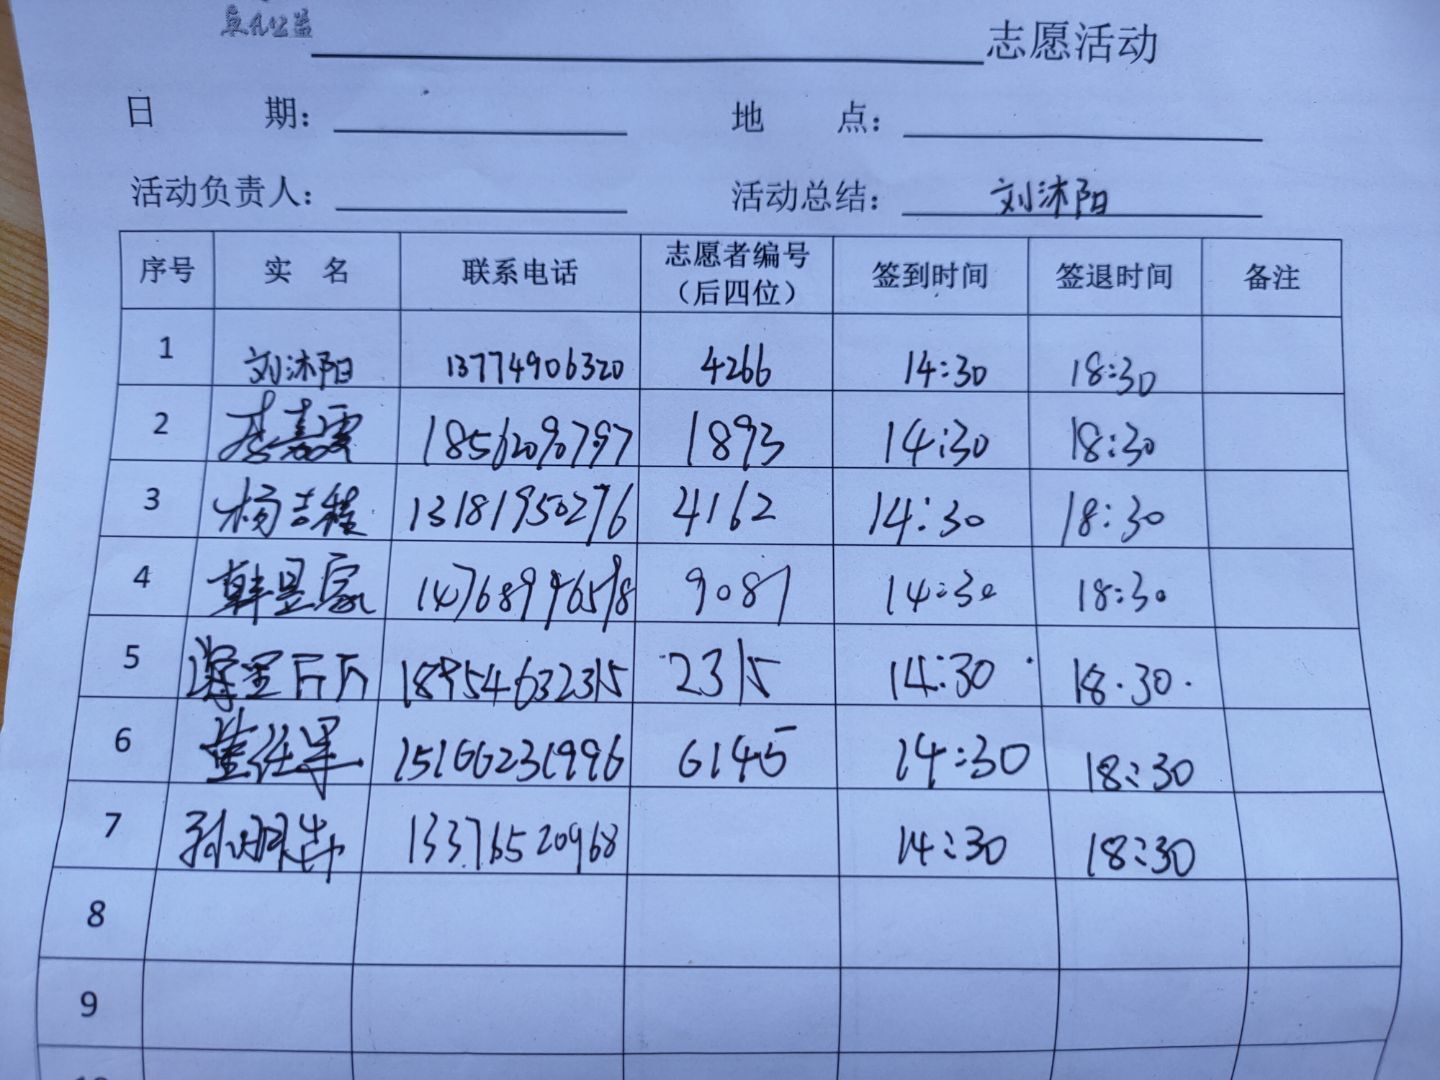 志愿活动
日 期： 地 点：
活动负责人： 活动总结： 刘沐阳
序号 实 名 联系电话 志愿者编号（后四位） 签到时间 签退时间 备注
1 刘沐阳 13774906320 4266 14:30 18:30
2 李嘉雯 18562090797 1893 14:30 18:30
3 杨吉程 13181950276 4162 14:30 18:30
4 韩昱家 14768946598 9087 14:30 18:30
5 18954632315 2315 14:30 18.30.
6 董任军 15166231996 6145 14:30 18:30
7 孙明 13376520968 14:30 18:30
8
9